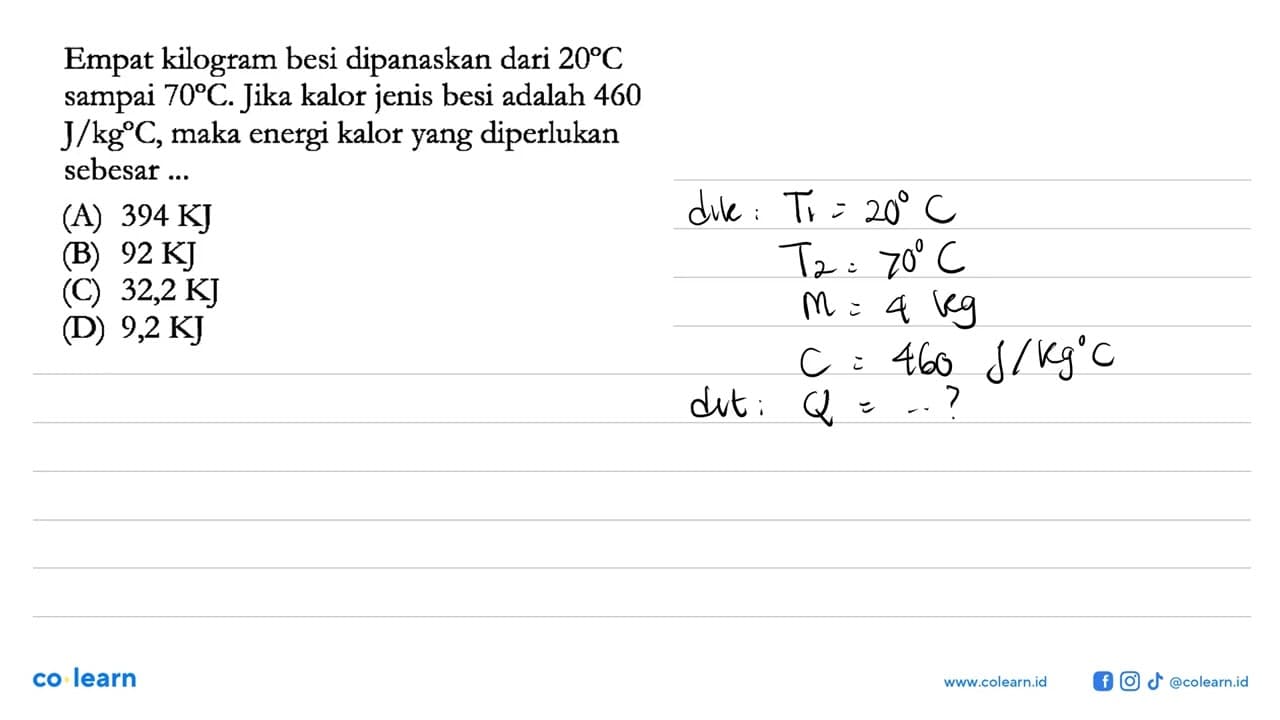 Empat kilogram besi dipanaskan dari 20°C
sampai 70°C. Jika kalor jenis besi adalah 460
J/kg°C, maka energi kalor yang diperlukan
sebesar ...
(A) 394 KJ
(B) 92 KJ
(C) 32,2 KJ
(D) 9,2 KJ
dik : T1 = 20° C
T2 = 70° C
m = 4 kg
C = 460 J/kg°C
dit : Q = ...?
co learn
www.colearn.id
@colearn.id